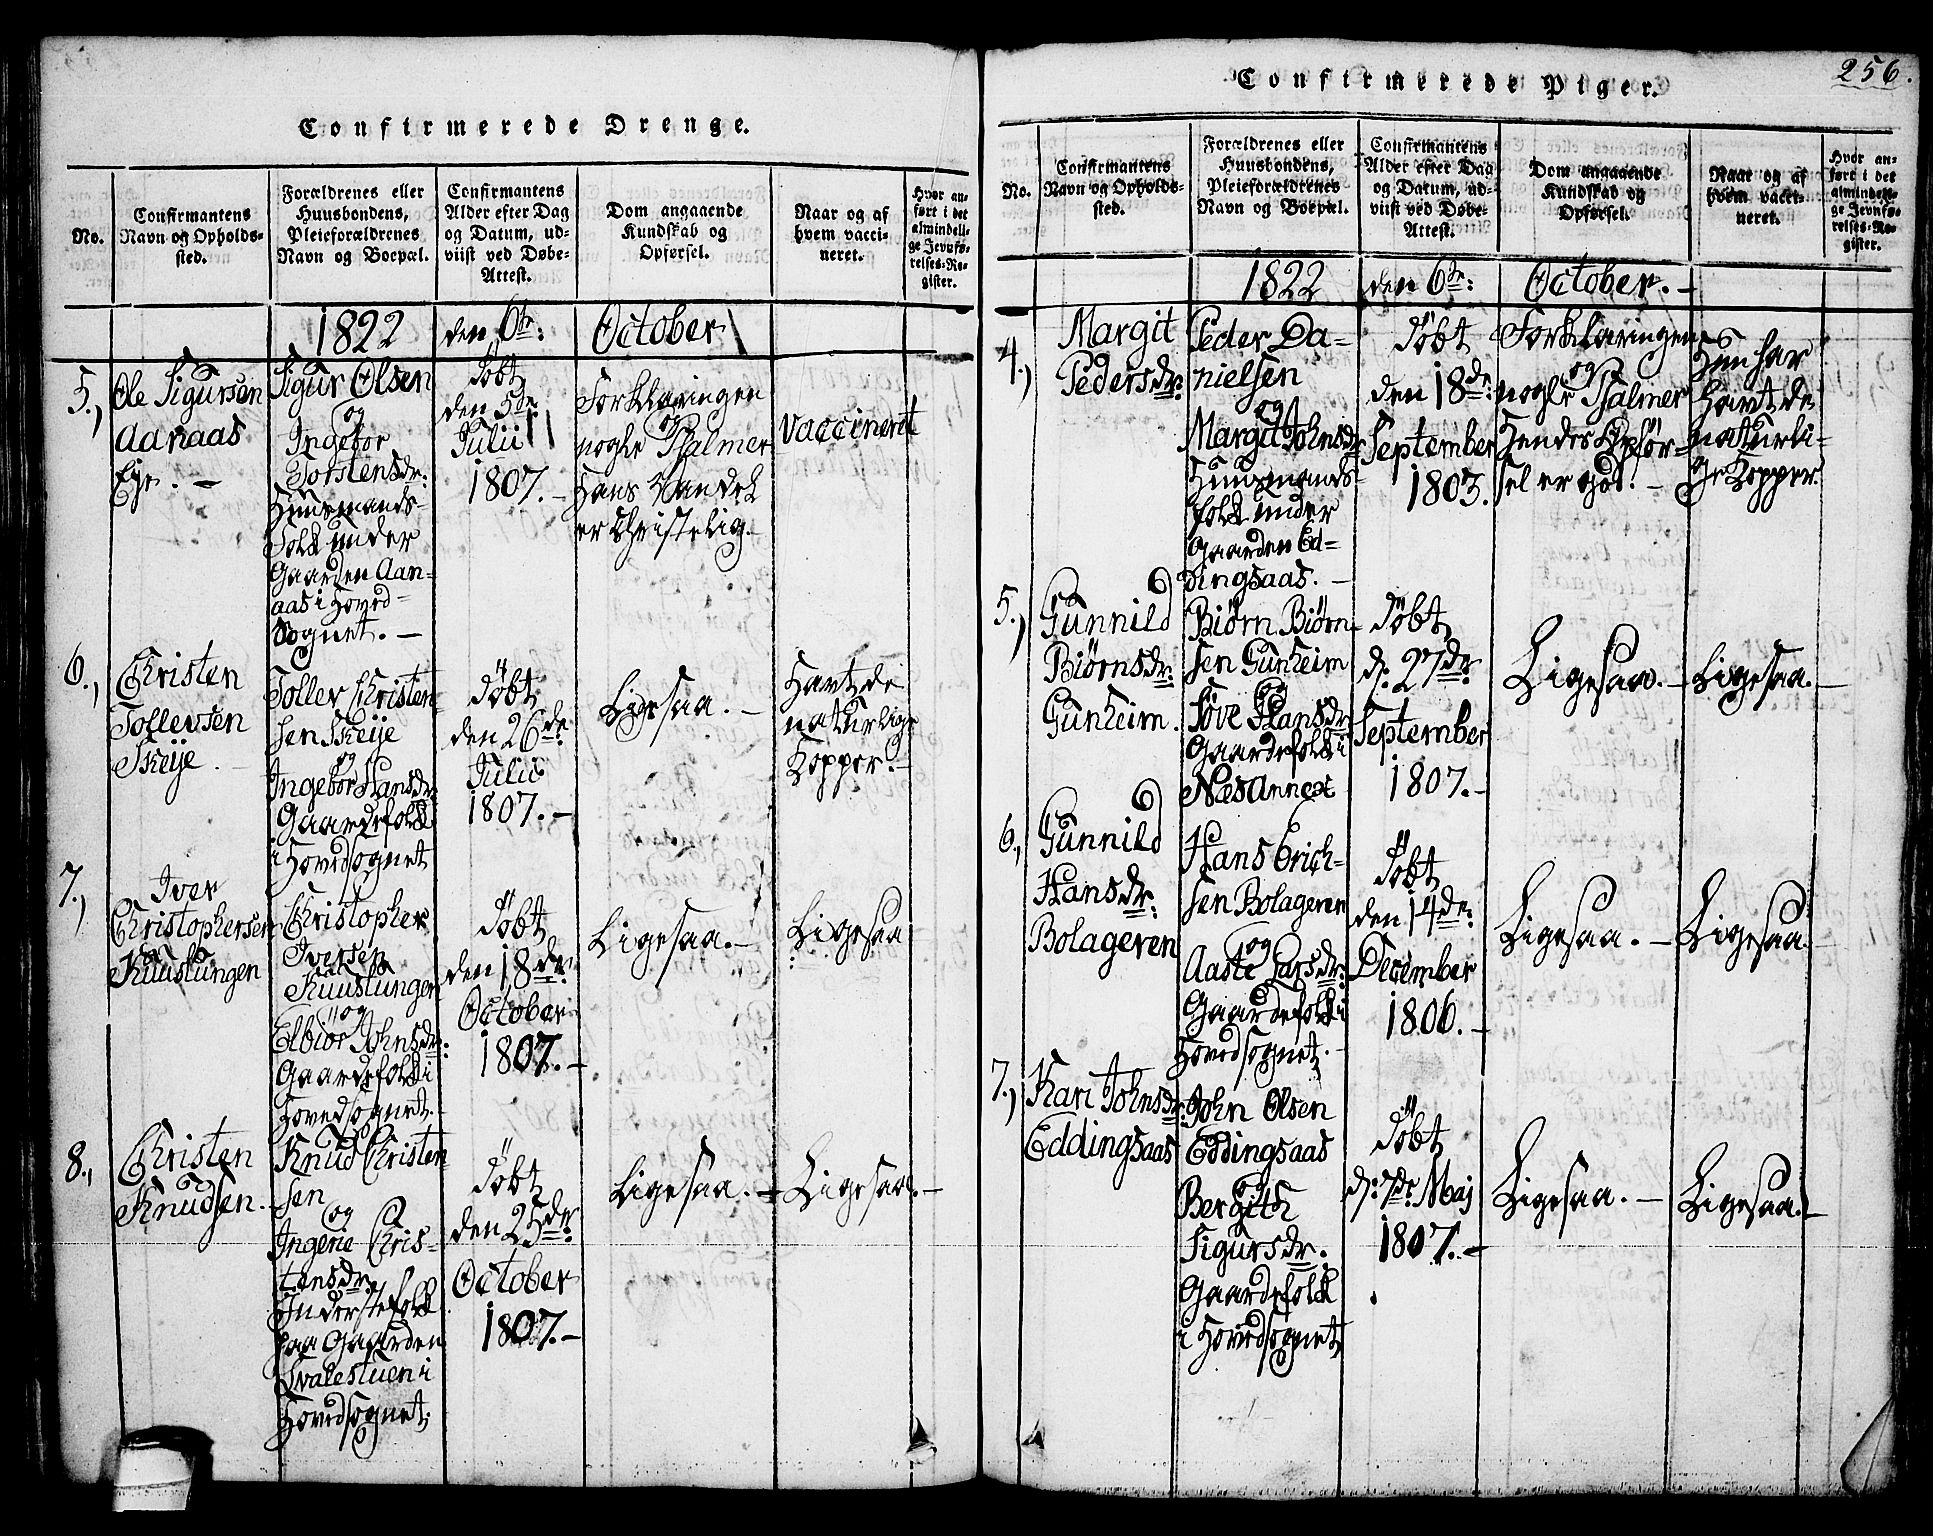 Confirmerede Drenge.
No.
Confirmantens
Navn og Opholds-
sted.
Forældrenes eller
Huusbondens,
Pleieforældrenes
Navn og Boepæl.
Confirmantens
Alder efter Dag
og Datum, ud-
viist ved Døbe-
Attest.
Dom angaaende
Kundskab og
Opførsel.
Naar og af
hvem vacci-
neret.
Hvor an-
ført i det
almindeli-
ge Jevnfø-
relses-Re-
gister.
1822 den 6te: October
5.)
Ole Sigursen
Aanaas
Eje. -
Sigur Olsen
og
Ingebor
Torstensdr:
Huusmands-
folk under
Gaarden Aan-
aas i Hoved-
Sognet. -
Døbt
den 5te
Julii
1807. -
Forklaringen
og
nogle Psalmer
Hans Vandel
er Christelig. -
Vaccineret
6.,
Christen
Tollevsen
Skeije. -
Tollev Christen-
sen Skeije
og
Ingebor Hansdr:
Gaardefolk
i Hovedsognet
Døbt
den 26de
Julii
1807. -
Ligesaa. -
Havt de
naturlige
Kopper. -
7.,
Iver
Christophersen
Kuuslungen
Christopher
Iversen
Kuuslungen
og
Elbiør Johnsdr:
Gaardefolk i
Hovedsognet. -
Døbt
den 18de
October
1807. -
Ligesaa. -
Ligesaa
8.,
Christen
Knudsen.
Knud Christen-
sen
og
Ingerie Chris-
tensdr:
Inderstefolk
paa Gaarden
Svalestuen i
Hovedsognet.
Døbt
den 25de:
October
1807. -
Ligesaa. -
Ligesaa. -
256.
Confirmerede Piger.
No.
Confirmantens
Navn og Opholds-
sted.
Forældrenes eller
Huusbondens,
Pleieforældrenes
Navn og Boepæl.
Confirmantens
Alder efter Dag
og Datum, ud-
viist ved Døbe-
Attest.
Dom angaaende
Kundskab og
Opførsel.
Naar og af
hvem vacci-
neret.
Hvor an-
ført i det
almindeli-
ge Jevnfø-
relses-Re-
gister.
1822 den 6te: October. -
4.)
Margit
Pedersdr:
Peder Da-
nielsen
og
Margit Johnsdr
Huusmands-
folk under
Gaarden Ed-
dingsaas. -
Døbt
den 18de:
September
1803.
Forklaringen
og
nogle Psalmer
Hendes Opfør-
sel er god. -
Hun har
havt de
naturli-
ge Kopper.
5.,
Gunnild
Biørnsdr:
Gunheim.
Biørn Biørn-
sen Gunheim
og
Tove Hansdr
Gaardefolk i
Næs Annex
Døbt
d: 27de:
September
1807. -
Ligesaa. -
Ligesaa. -
6.,
Gunnild
Hansdr:
Bolageren
Hans Erich-
sen Bolageren
og
Aaste Larsdr:
Gaardefolk i
Hovedsognet. -
Døbt
den 14de:
December
1806. -
Ligesaa. -
Ligesaa. -
7.,
Kari Johnsdr:
Eddingsaas
John Olsen
Eddingsaas
og
Bergith
Sigursdr.
Gaardefolk
i Hovedsognet
Døbt
d: 7de: Maj
1807. -
Ligesaa. -
Ligesaa. -